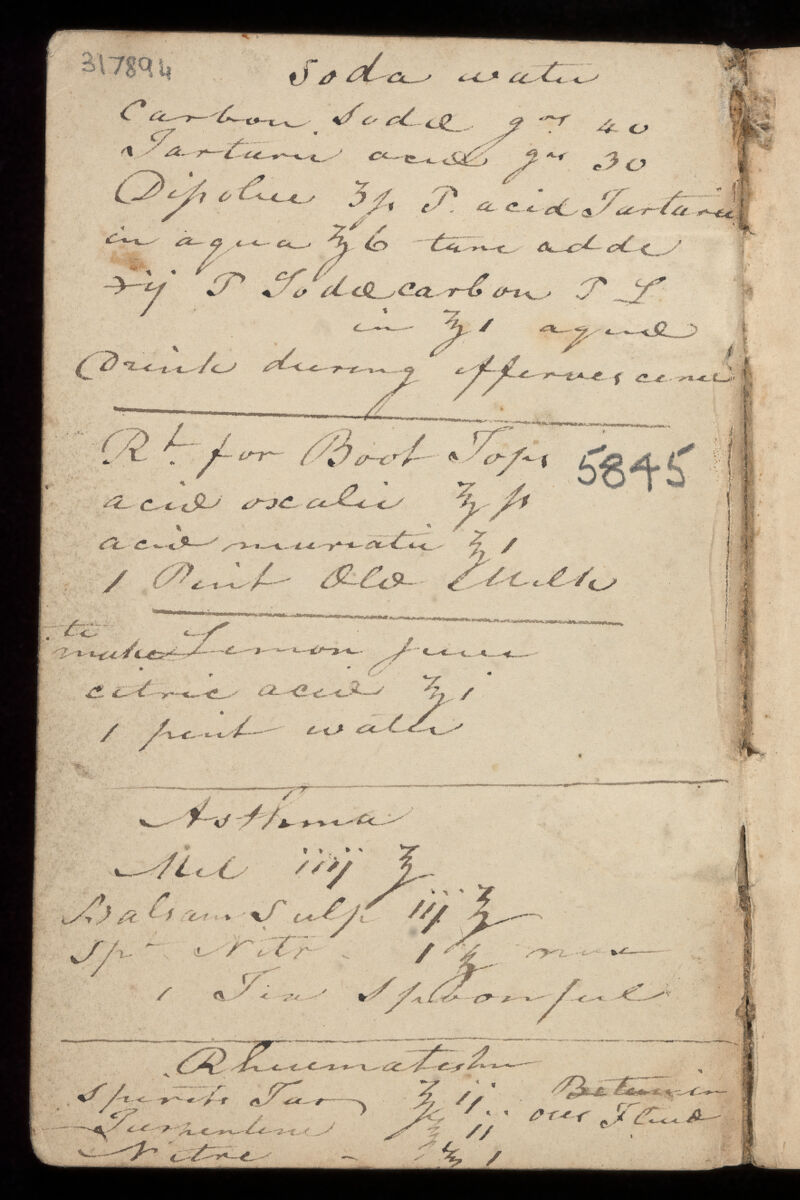 317894
Soda water
Carbon. Sodæ grs 40
Tartaric acid grs 30
ʒ P. acid Tartaric
in aqua ℥6 tunc adde
P Sodæ carbon P
in ℥1 aquæ
Drink during effervescence
Rt. for Boot Tops
5845
acid oxalic ℥ ſs
acid muriatic ℥1
1 Pint Old Milk
to
make Lemon juice
citric acid ℥i
1 pint water
Asthma
Mel iiij ℥
Balsam Sulp iij ℥
Spt Nitr 1 ℥ mix
1 Tea Spoonful
Rheumatism
Spirits Tar ℥ ij
Fluid
Turpentine ℥ ij
Nitre - ℥ 1